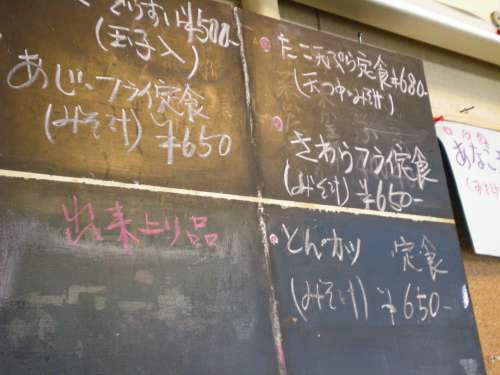 うすい ¥500-
(玉子入)
あじフライ定食
(みそ汁) ¥650
出来上り品
たこ天ぷら定食 ¥680-
(天つゆ・みそ汁)
さわらフライ定食
(みそ汁) ¥650-
とんかつ 定食
(みそ汁) ¥650-
あなご